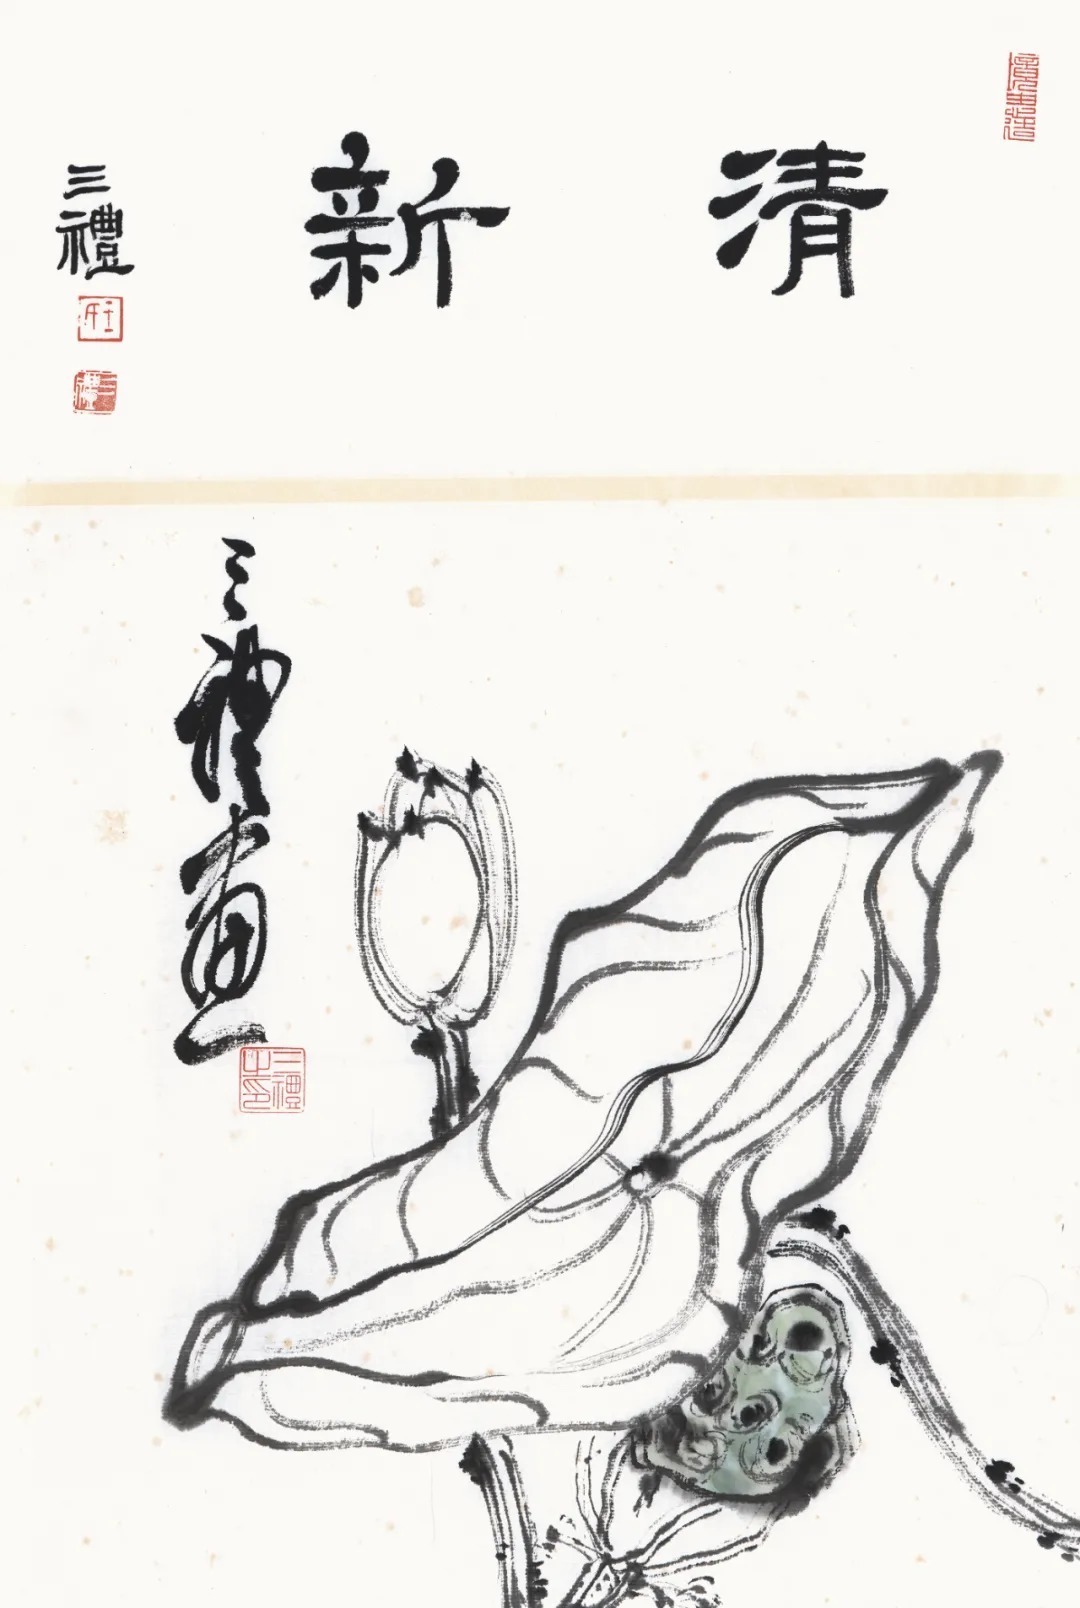 清新
三禮
三禮
三禮畫
三禮之印